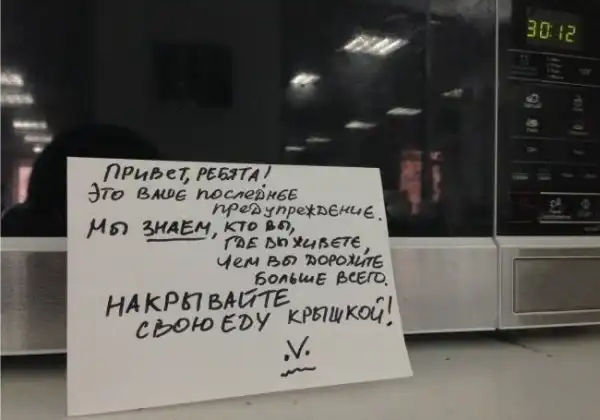 30:12
ПРИВЕТ, РЕБЯТА!
ЭТО ВАШЕ ПОСЛЕДНЕЕ
ПРЕДУПРЕЖДЕНИЕ.
МЫ ЗНАЕМ, КТО ВЫ,
ГДЕ ВЫ ЖИВЕТЕ,
ЧЕМ ВЫ ДОРОЖИТЕ
БОЛЬШЕ ВСЕГО.
НАКРЫВАЙТЕ
СВОЮ ЕДУ КРЫШКОЙ!
.V.